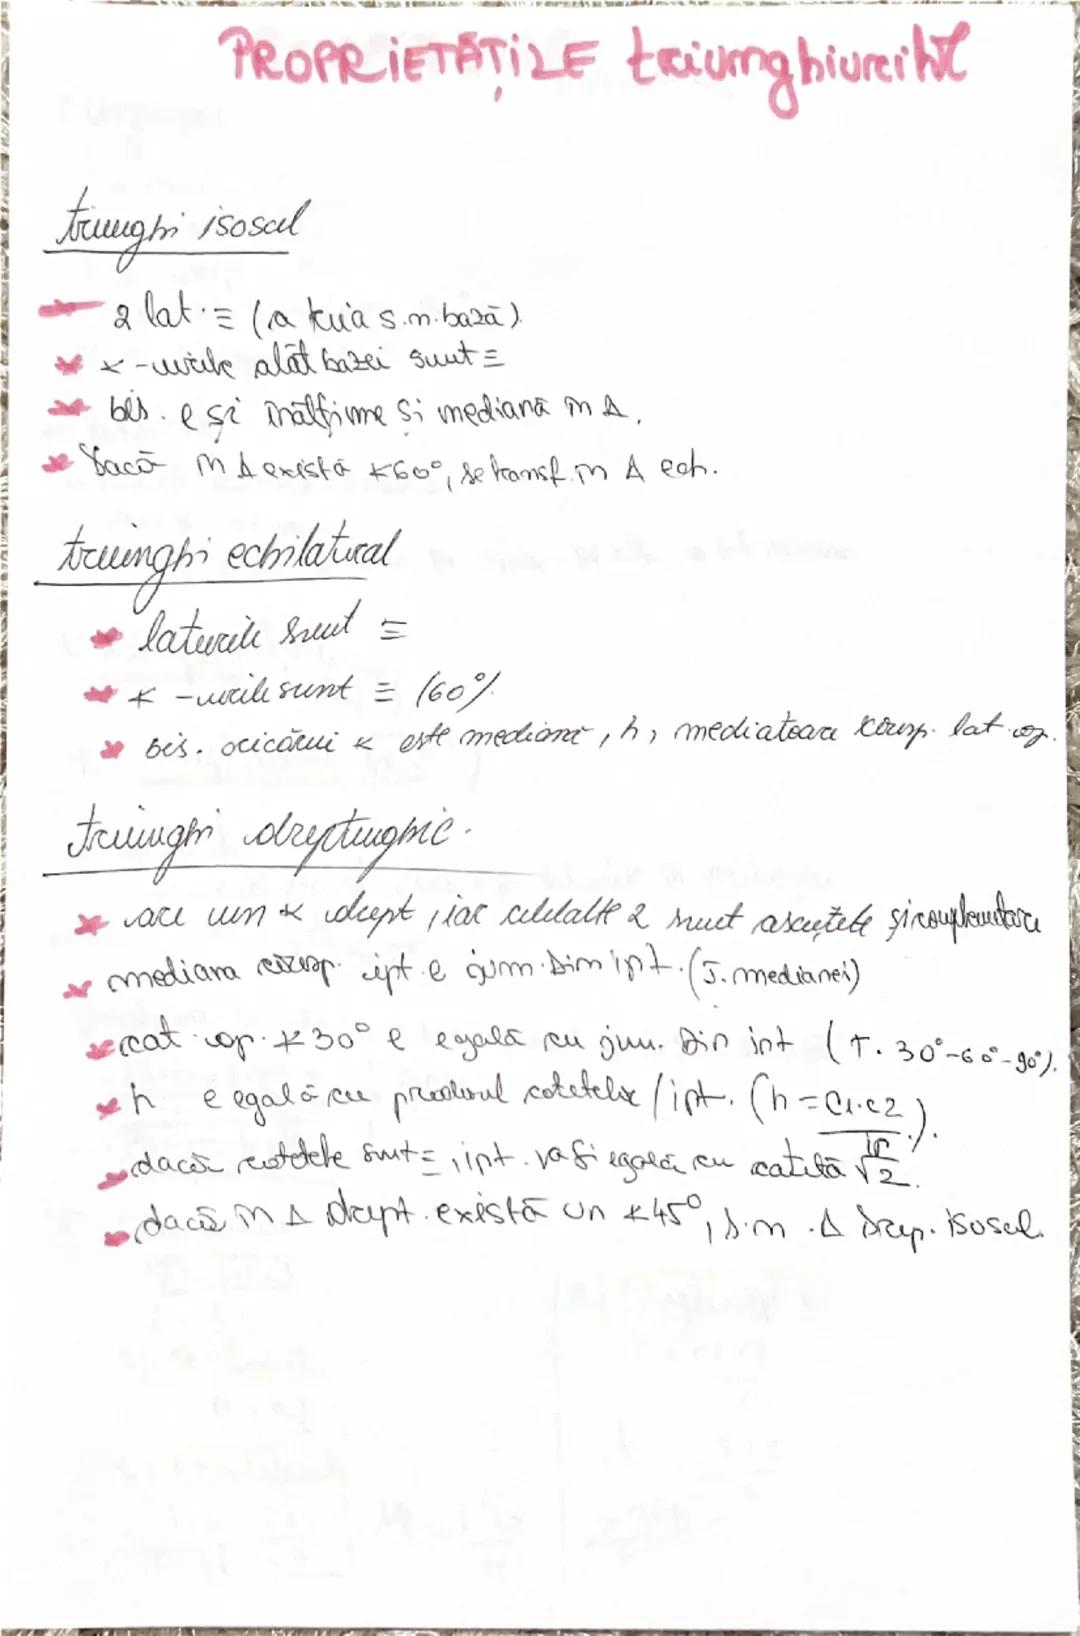 PROPRIETĂȚILE triunghiurilor
triunghi isoscel
2 lat. ≡ (a III-a s.n. bază).
∢-urile alăt bazei sunt ≡
bis. e și înălțime și mediană în Δ.
Dacă în Δ există ∢60°, se transf. în Δ ech.
triunghi echilateral
laturile sunt ≡
∢-urile sunt ≡ (60°).
bis. oricărui ∢ este mediană, h, mediatoare coresp. lat. op.
triunghi dreptunghic.
are un ∢ drept, iar celelalte 2 sunt ascuțite și complementare
mediana coresp. ipt. e jum. din ipt. (T. medianei)
cat. op. ∢30° e egală cu jum. din int (T. 30°-60°-90°).
h e egală cu produsul catetelor / ipt. (h = c1·c2 / ip).
dacă catetele sunt ≡, ipt. va fi egală cu cateta √2.
dacă în Δ drept. există un ∢45°, s.n. Δ drep. isoscel.